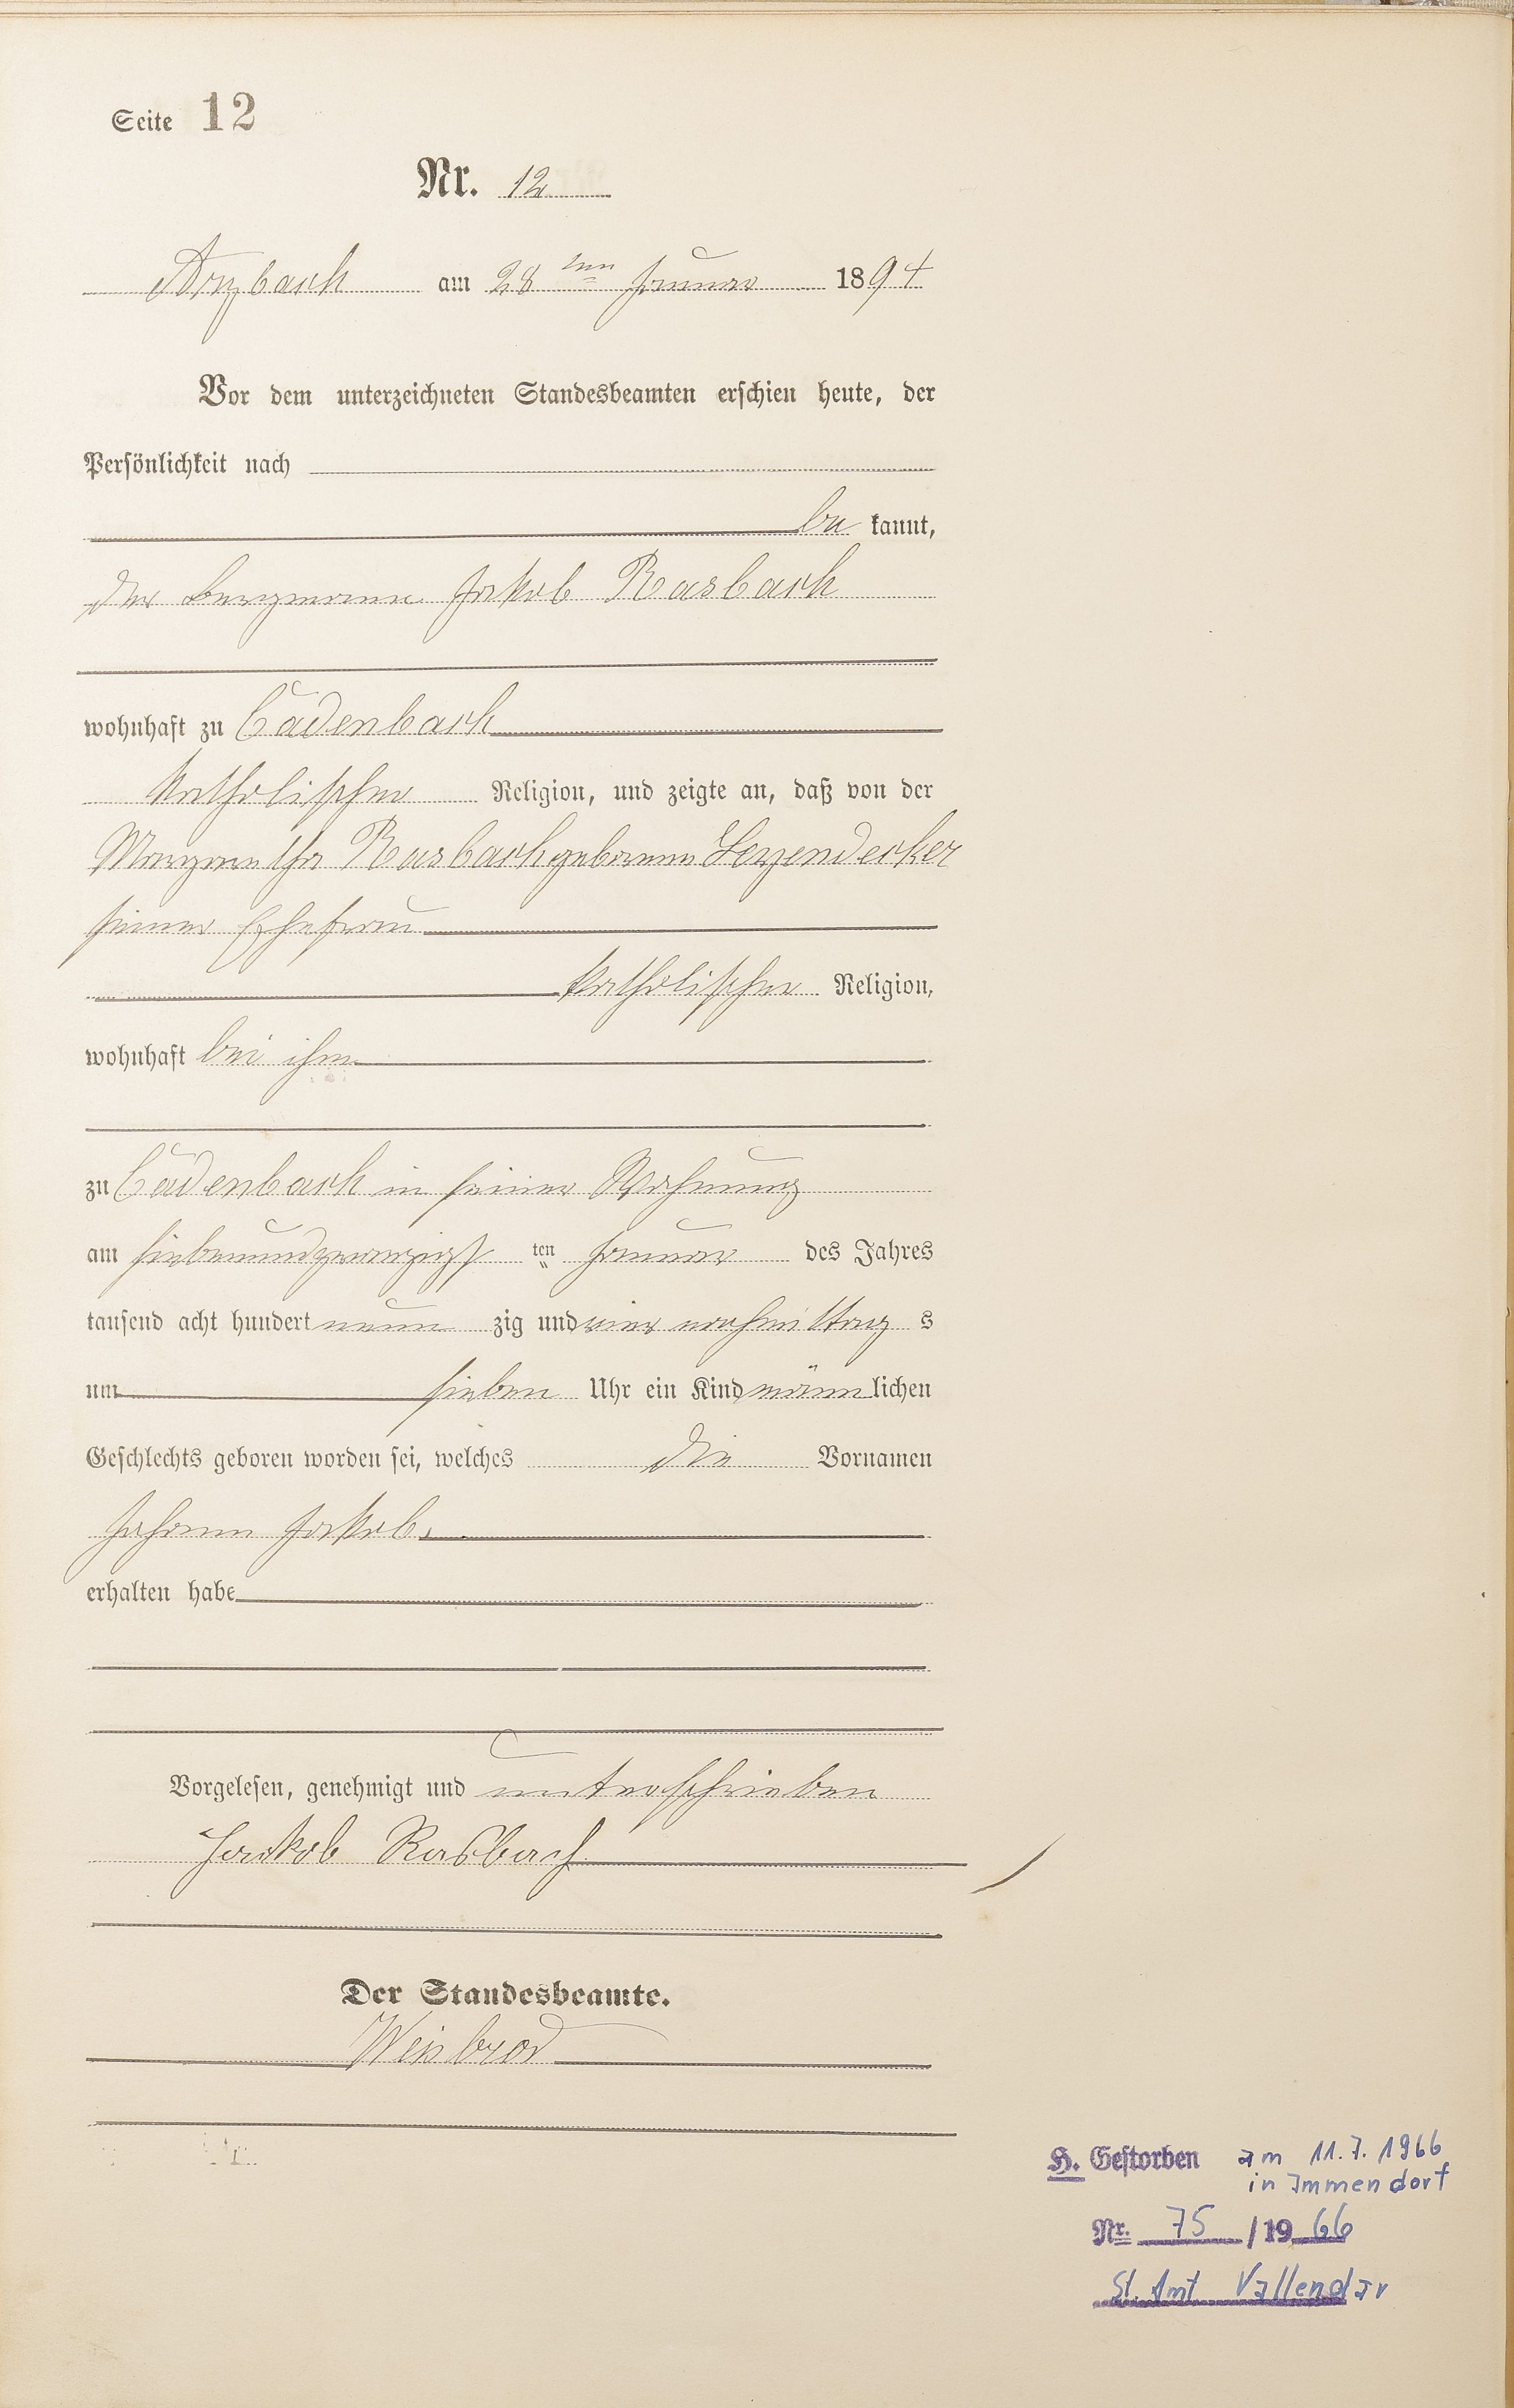 Seite 12
Nr. 12
Arzbach am 28 ten Januar 1894
Vor dem unterzeichneten Standesbeamten erschien heute, der
Persönlichkeit nach
be kannt,
der Bergmann Jakob Rasbach
wohnhaft zu Cadenbach
katholischer Religion, und zeigte an, daß von der
Margaretha Rasbach geborenen Leyendecker
seiner Ehefrau
katholischer Religion,
wohnhaft bei ihm
zu Cadenbach in seiner Wohnung
am siebenundzwanzigst ten Januar des Jahres
tausend acht hundert neun zig und vier nachmittag s
um sieben Uhr ein Kind männ lichen
Geschlechts geboren worden sei, welches die Vornamen
Johann Jakob
erhalten habe
Vorgelesen, genehmigt und unterschrieben
Jakob Rasbach
Der Standesbeamte.
Weisbrod
H. Gestorben am 11.7.1966
in Immendorf
Nr. 75 / 19 66
St. Amt Vallendar